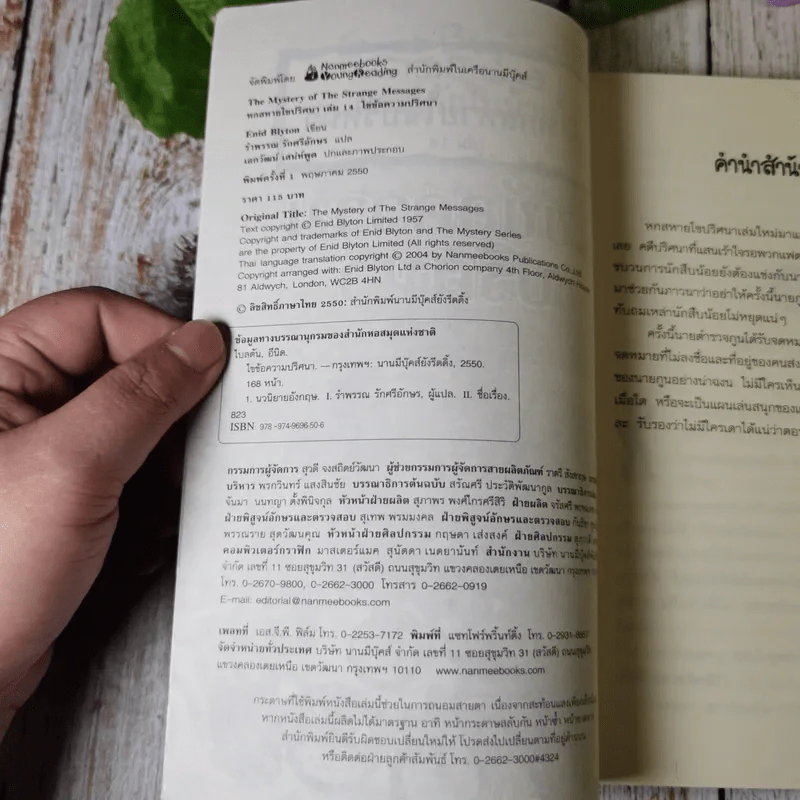 จัดพิมพ์โดย Nanmeebooks Young Reading สำนักพิมพ์ในเครือนานมีบุ๊คส์
The Mystery of The Strange Messages
หกสหายไขปริศนา เล่ม 14 ไขข้อความปริศนา
Enid Blyton เขียน
รำพรรณ รักศรีอักษร แปล
เอกวัฒน์ เสน่ห์พูด ปกและภาพประกอบ
พิมพ์ครั้งที่ 1 พฤษภาคม 2550
ราคา 115 บาท
Original Title: The Mystery of The Strange Messages
Text copyright © Enid Blyton Limited 1957
Copyright and trademarks of Enid Blyton and The Mystery Series
are the property of Enid Blyton Limited (All rights reserved)
Thai language translation copyright © 2004 by Nanmeebooks Publications Co.,
Copyright arranged with: Enid Blyton Ltd a Chorion company 4th Floor, Aldwych
81 Aldwych, London, WC2B 4HN
© ลิขสิทธิ์ภาษาไทย 2550: สำนักพิมพ์นานมีบุ๊คส์ยังรีดดิ้ง
ข้อมูลทางบรรณานุกรมของสำนักหอสมุดแห่งชาติ
ไบลตัน, อีนิด.
ไขข้อความปริศนา. — กรุงเทพฯ: นานมีบุ๊คส์ยังรีดดิ้ง, 2550.
168 หน้า.
1. นวนิยายอังกฤษ. I. รำพรรณ รักศรีอักษร, ผู้แปล. II. ชื่อเรื่อง.
823
ISBN 978-974-9696-50-6
กรรมการผู้จัดการ สุวดี จงสถิตย์วัฒนา ผู้ช่วยกรรมการผู้จัดการสายผลิตภัณฑ์ ราตรี
บริหาร พรกวินทร์ แสงสินชัย บรรณาธิการต้นฉบับ สรัณศรี ประวัติพัฒนากูล
จันมา นนทญา ตั้งพินิจกุล หัวหน้าฝ่ายผลิต สุภาพร พงศ์ไกรศรีสิริ ฝ่ายผลิต จรัสศรี
ฝ่ายพิสูจน์อักษรและตรวจสอบ สุเทพ พรมมงคล ฝ่ายพิสูจน์อักษรและตรวจสอบ
พรรณราย สุดวัฒนคุณ หัวหน้าฝ่ายศิลปกรรม กฤษดา เส่งสงค์ ฝ่ายศิลปกรรม
คอมพิวเตอร์กราฟิก มาสเตอร์แมค สุนัดดา เนตยานันท์ สำนักงาน บริษัท
จำกัด เลขที่ 11 ซอยสุขุมวิท 31 (สวัสดี) ถนนสุขุมวิท แขวงคลองเตยเหนือ เขตวัฒนา
โทร. 0-2670-9800, 0-2662-3000 โทรสาร 0-2662-0919
E-mail: editorial@nanmeebooks.com
เพลทที่ เอส.จี.พี. ฟิล์ม โทร. 0-2253-7172 พิมพ์ที่ แซทโฟร์พริ้นท์ติ้ง โทร.
จัดจำหน่ายทั่วประเทศ บริษัท นานมีบุ๊คส์ จำกัด เลขที่ 11 ซอยสุขุมวิท 31 (สวัสดี) ถนนสุขุมวิท
แขวงคลองเตยเหนือ เขตวัฒนา กรุงเทพฯ 10110 www.nanmeebooks.com
กระดาษที่ใช้พิมพ์หนังสือเล่มนี้ช่วยในการถนอมสายตา เนื่องจากสะท้อนแสง
หากหนังสือเล่มนี้ผลิตไม่ได้มาตรฐาน อาทิ หน้ากระดาษสลับกัน หน้าซ้ำ
สำนักพิมพ์ยินดีรับผิดชอบเปลี่ยนใหม่ให้ โปรดส่งไปเปลี่ยนตามที่อยู่
หรือติดต่อฝ่ายลูกค้าสัมพันธ์ โทร. 0-2662-3000#4324
คำนำสำนัก
หกสหายไขปริศนาเล่มใหม่มาแ
เลย คดีปริศนาที่แสนเร้าใจรอพวกแฟต
ขบวนการนักสืบน้อยยังต้องแข่งกับนา
มาช่วยกันภาวนาว่าอย่าให้ครั้งนี้นายกู
ทับถมเหล่านักสืบน้อยไม่หยุดแน่ๆ
ครั้งนี้นายตำรวจกูนได้รับจดหม
จดหมายที่ไม่ลงชื่อและที่อยู่ของคนส่ง
ของนายกูนอย่างน่าฉงน ไม่มีใครเห็น
เมื่อใด หรือจะเป็นแผนเล่นสนุกของแ
ละ รับรองว่าไม่มีใครเดาได้แน่ว่าตอ